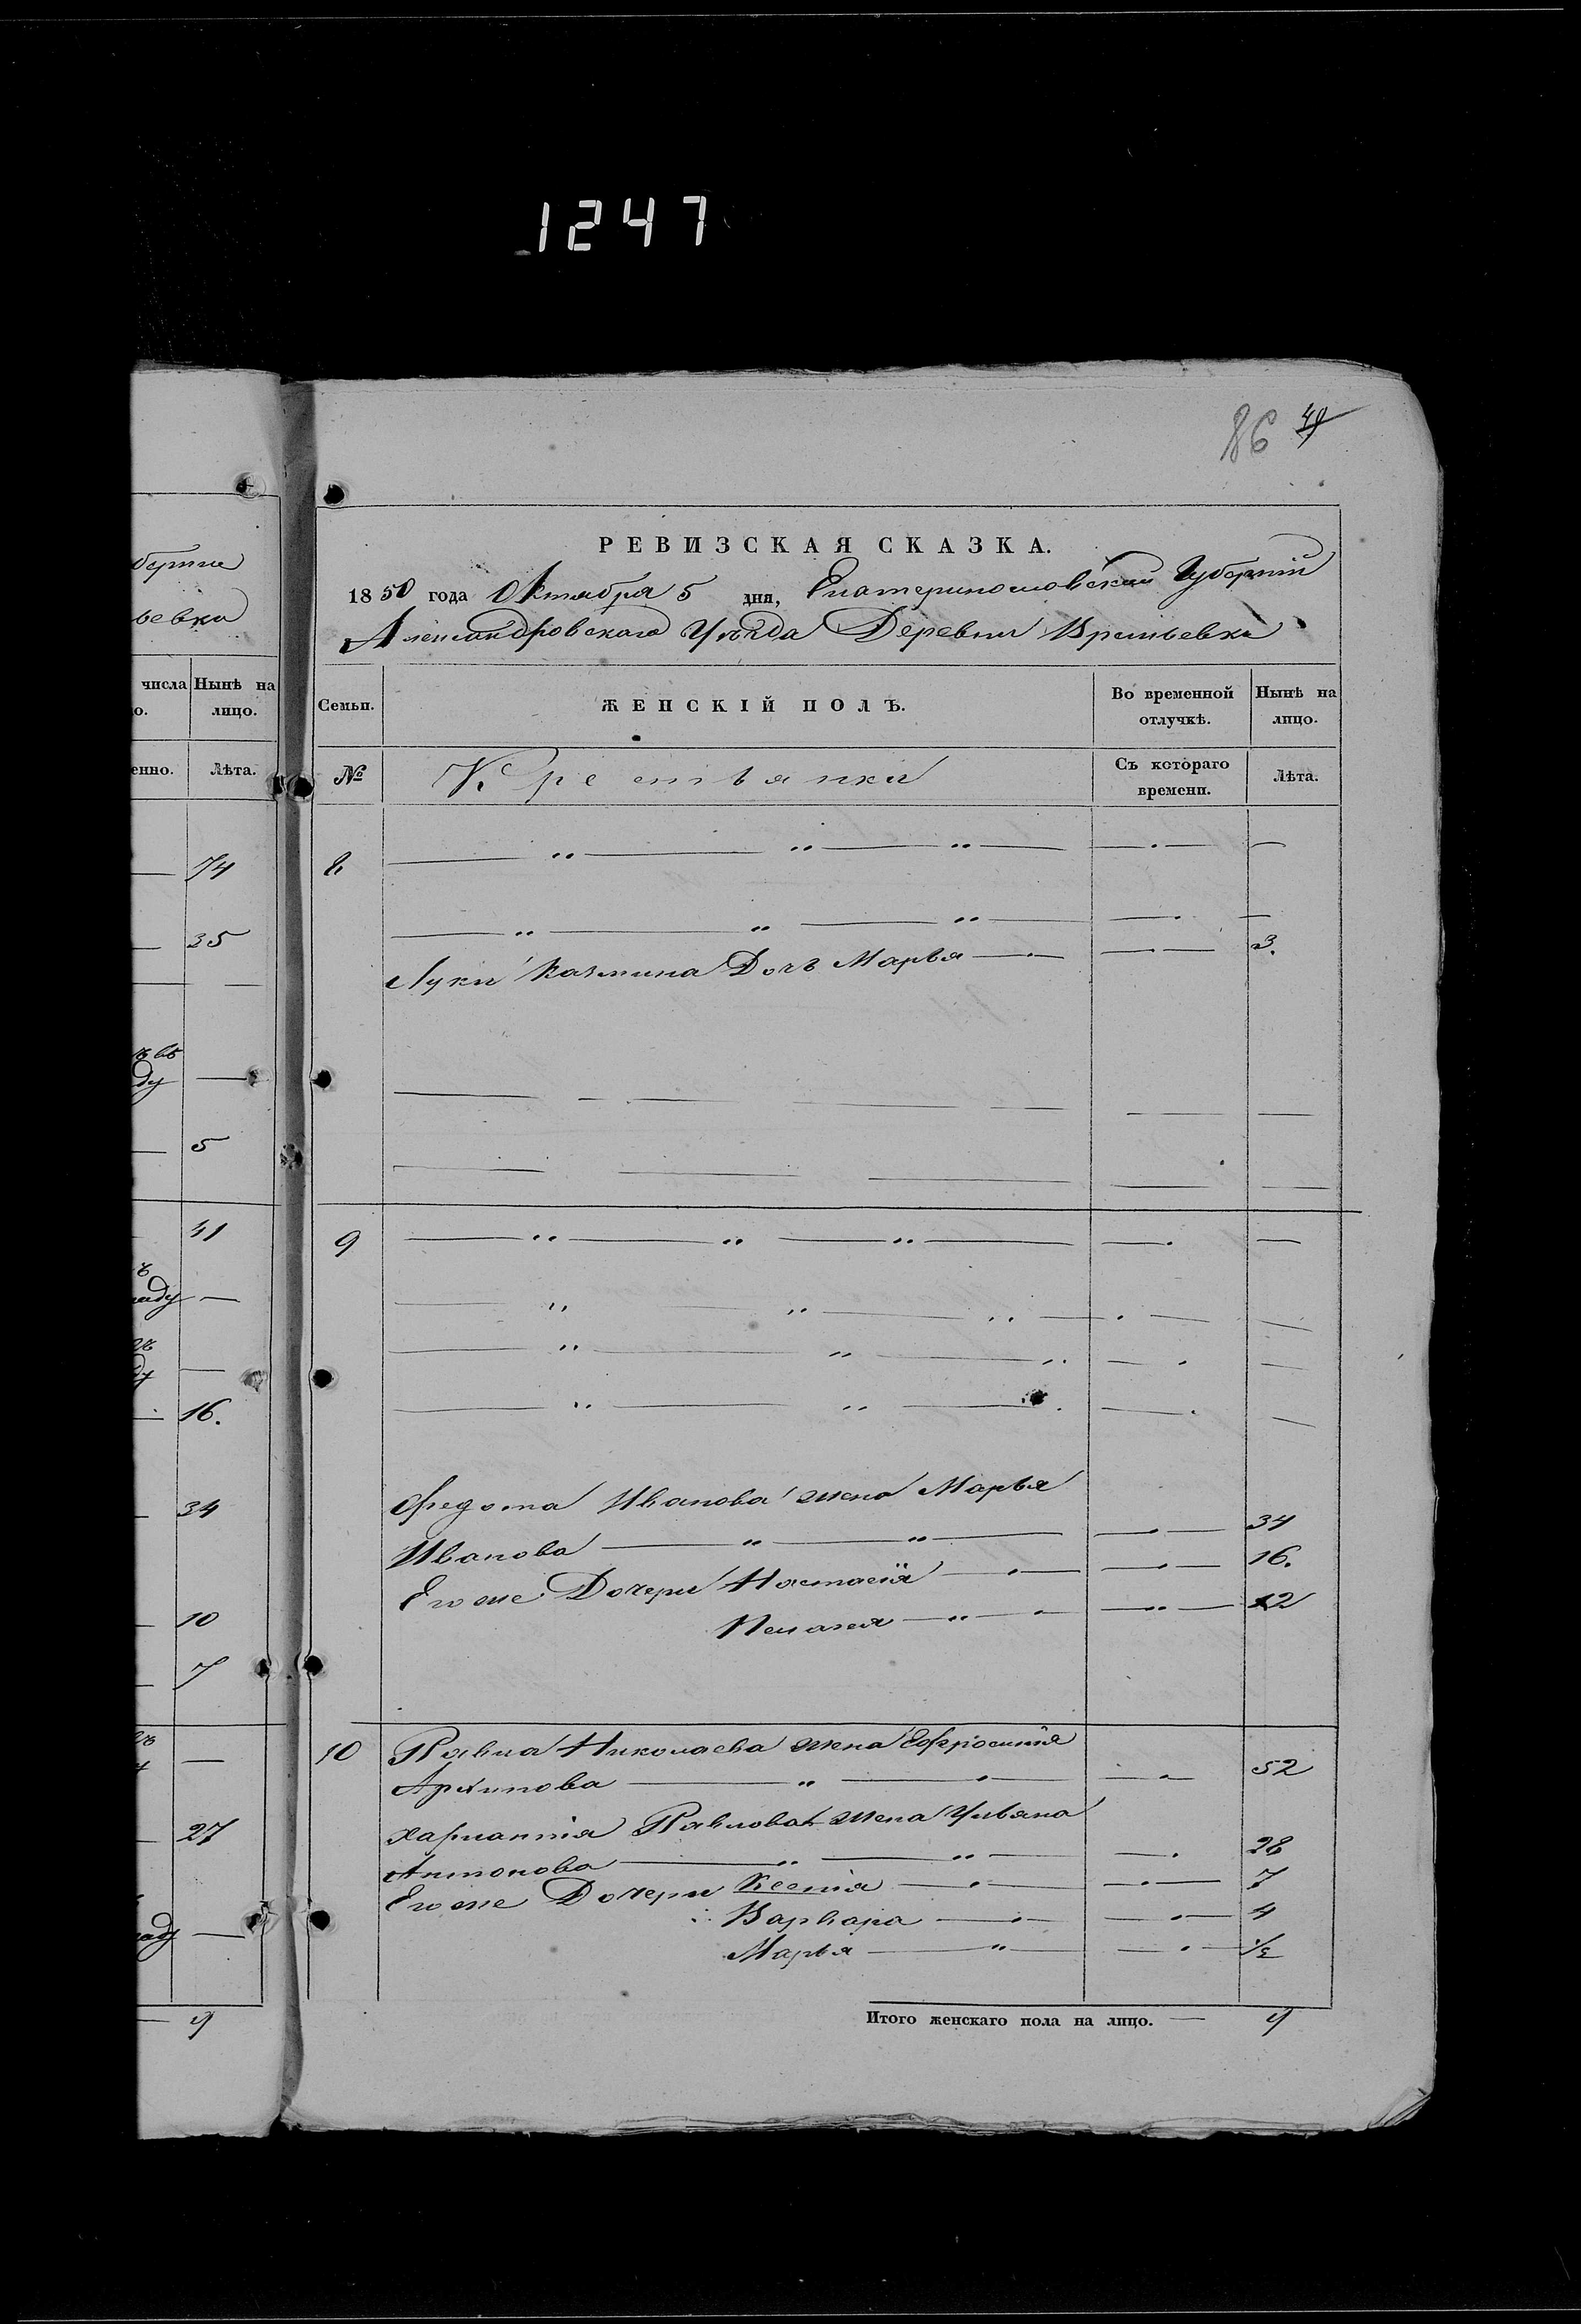 1247
86 49
РЕВИЗСКАЯ СКАЗКА.
1850 года Октября 5 дня, Екатеринославской Губерніи
Александровскаго Уѣзда Деревни
Семьи. ЖЕНСКІЙ ПОЛЪ. Во временной отлучкѣ. Нынѣ на лицо.
№ Крестьянки Съ котораго времени. Лѣта.
8
Луки Казмина Дочь Марья 3.
9
Федота Иванова жена Марья
Иванова 34
Его же Дочери Настасія 16.
Пелагея 12
10 Павла Николаева жена Ефросинія
Архипова 52
Харлантія Павлова жена Ульяна
Антонова 28
Его же Дочери Ксенія 7
Варвара 4
Марья 1/2
Итого женскаго пола на лицо. — 9
берніи
ьевки
числа Нынѣ на
о. лицо.
енно. Лѣта.
74
35
ду
5
41
аду
16.
34
10
7
27
аду
9